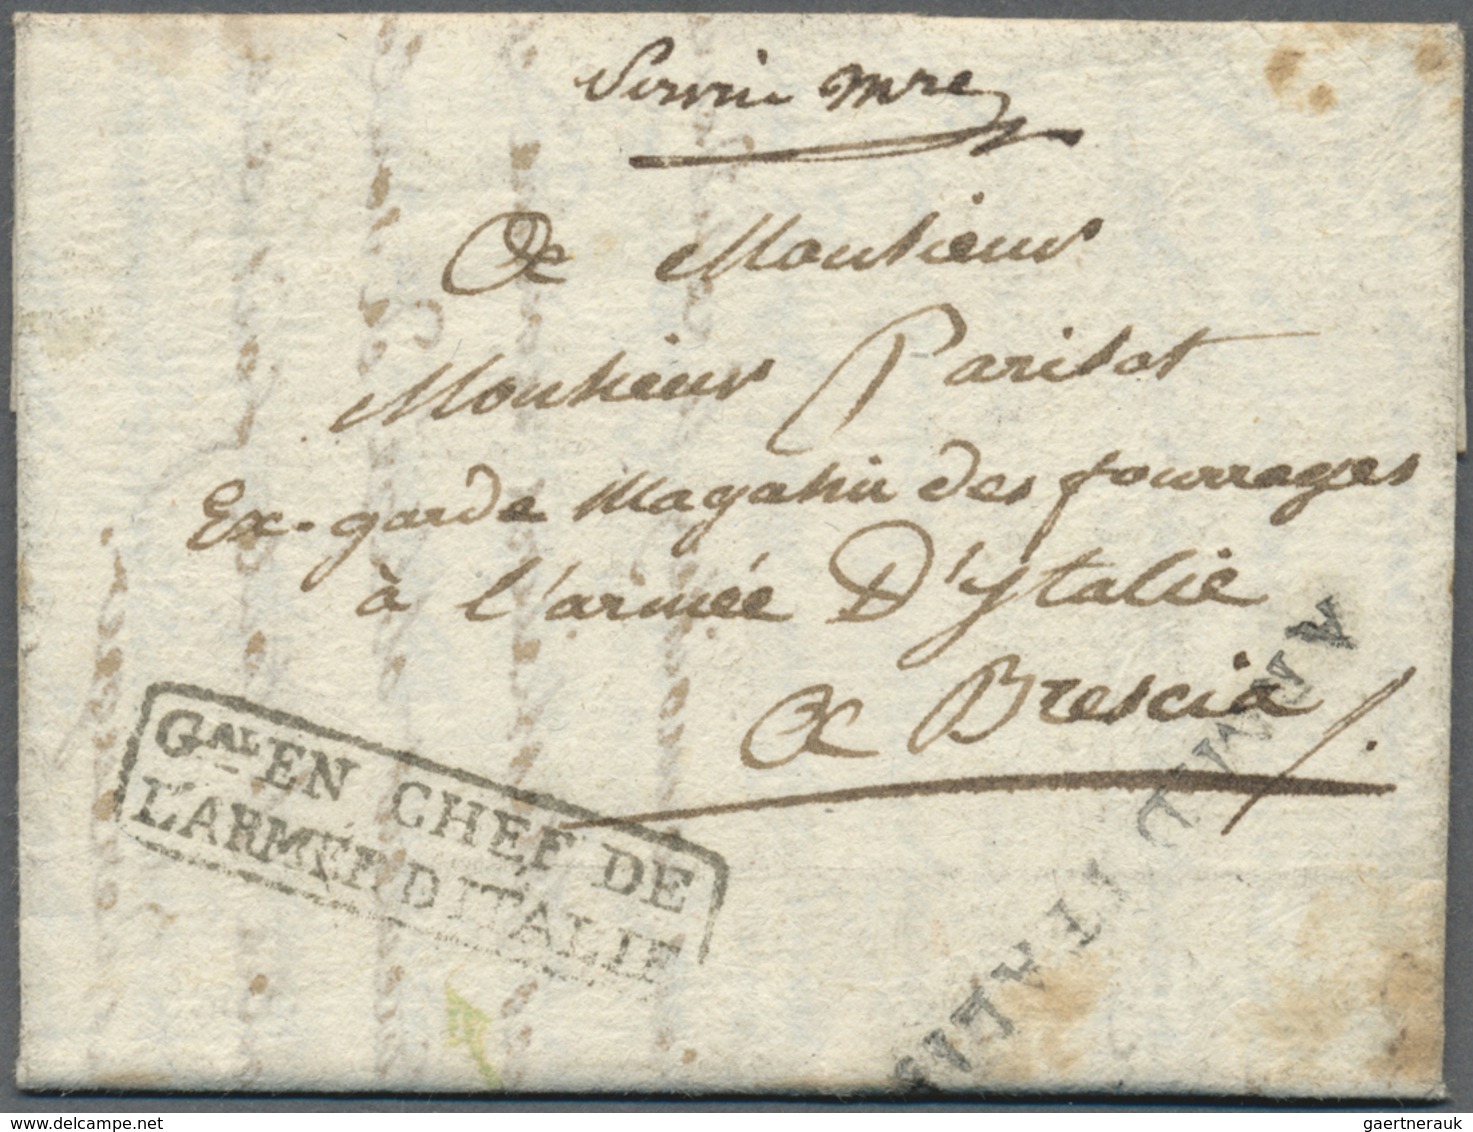 Servie mre
A Monsieur
Monsieur Parisot
Ex-garde Magasin des fourrages
à l'armée D'Italie
A Brescia
GAL EN CHEF DE
L'ARMÉE D'ITALIE
ARM. D'ITALIE
gaertnerauk @ delcampe.net